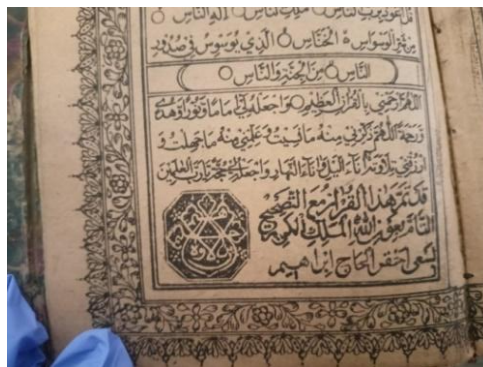 قل اعوذ برب الناس ملك الناس اله الناس
من شر الوسواس الخناس الذي يوسوس في صدور
الناس من الجنة والناس
اللهم ارحمني بالقران العظيم واجعله لي اماما ونورا وهدى
ورحمة اللهم ذكرني منه ما نسيت وعلمني منه ما جهلت و
ارزقني تلاوته اناء الليل واناء النهار واجعله لي حجة يا رب العالمين
قد تم هذا القران مع التصحيح
التام بعون الله الملك
لسعى احقر الحاج ابراهيم